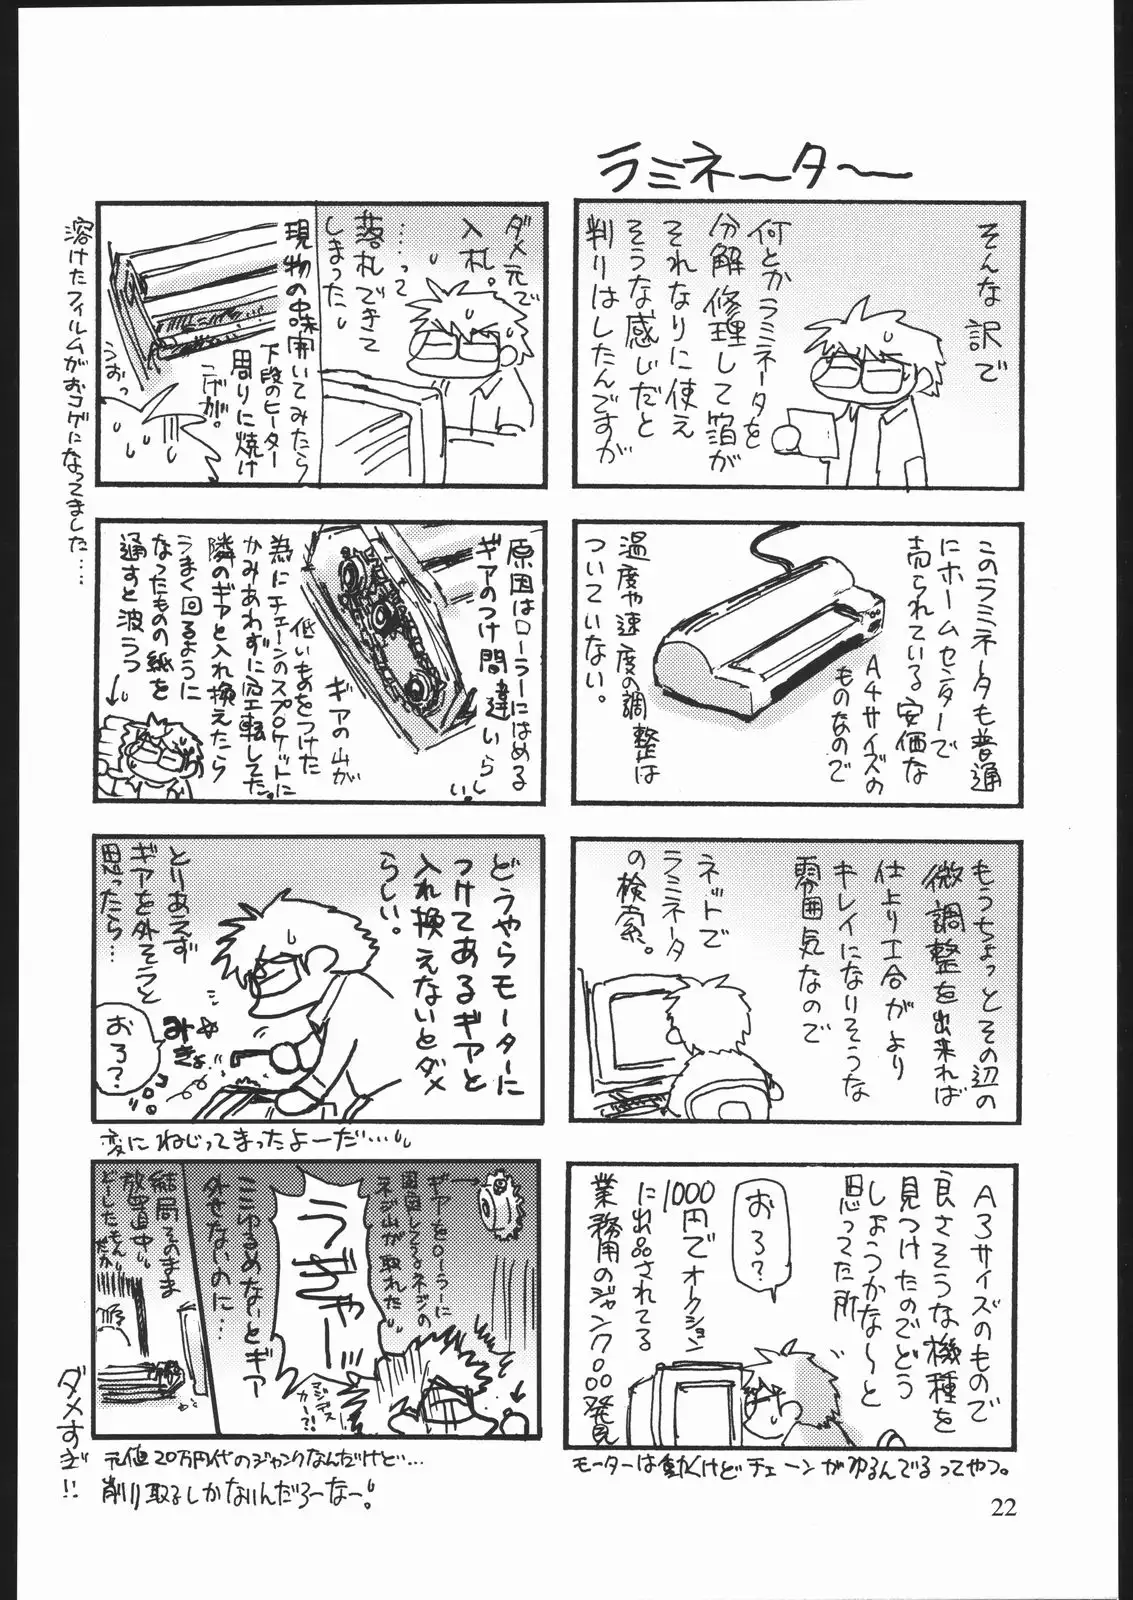 ラミネ〜タ〜
そんな訳で
何とかラミネータを
分解修理して箔が
それなりに使え
そうな感じだと
判りはしたんですが
このラミネータも普通
にホームセンターで
売られている安価な
A4サイズの
ものなので
温度や速度の調整は
ついていない。
もうちょっとその辺の
微調整を出来れば
仕上り工合がより
キレイになりそうな
雰囲気なので
ネットで
ラミネータ
の検索。
A3サイズのもので
良さそうな機種を
見つけたのでどう
しょうかな〜と
思ってた所
おろ?
1000円でオークション
に出品されてる
業務用のジャンク○○○発見
モーターは動くけどチェーンがゆるんでるってやつ。
ダメ元で
入札。
…って
落札できて
しまった
現物の中味開いてみたら
下段のヒーター
周りに焼け
こげが。
うおっ
溶けたフィルムがおコゲになってました……
原因はローラーにはめる
ギアのつけ間違いらしい。
ギアの山が
低いものをつけた
為にチェーンのスプロケットに
かみあわずに空転してた。
隣のギアと入れ換えたら
うまく回るように
なったものの紙を
通すと波うつ
どうやらモーターに
つけてあるギアと
入れ換えないとダメ
らしい。
とりあえず
ギアを外そうと
思ったら…
みきょ
おろ?
変にねじってまったよーだ…
ギアをローラーに
固固してるネジの
ネジ山が取れた
うぎゃー
ここゆるめないとギア
外せないのに…
マジッスカー?!
結局そのまま
放置中
どーしたもんだか
元値20万円代のジャンクなんだけど…
削り取るしかないんだろーなー!
ダメすぎ!!
22